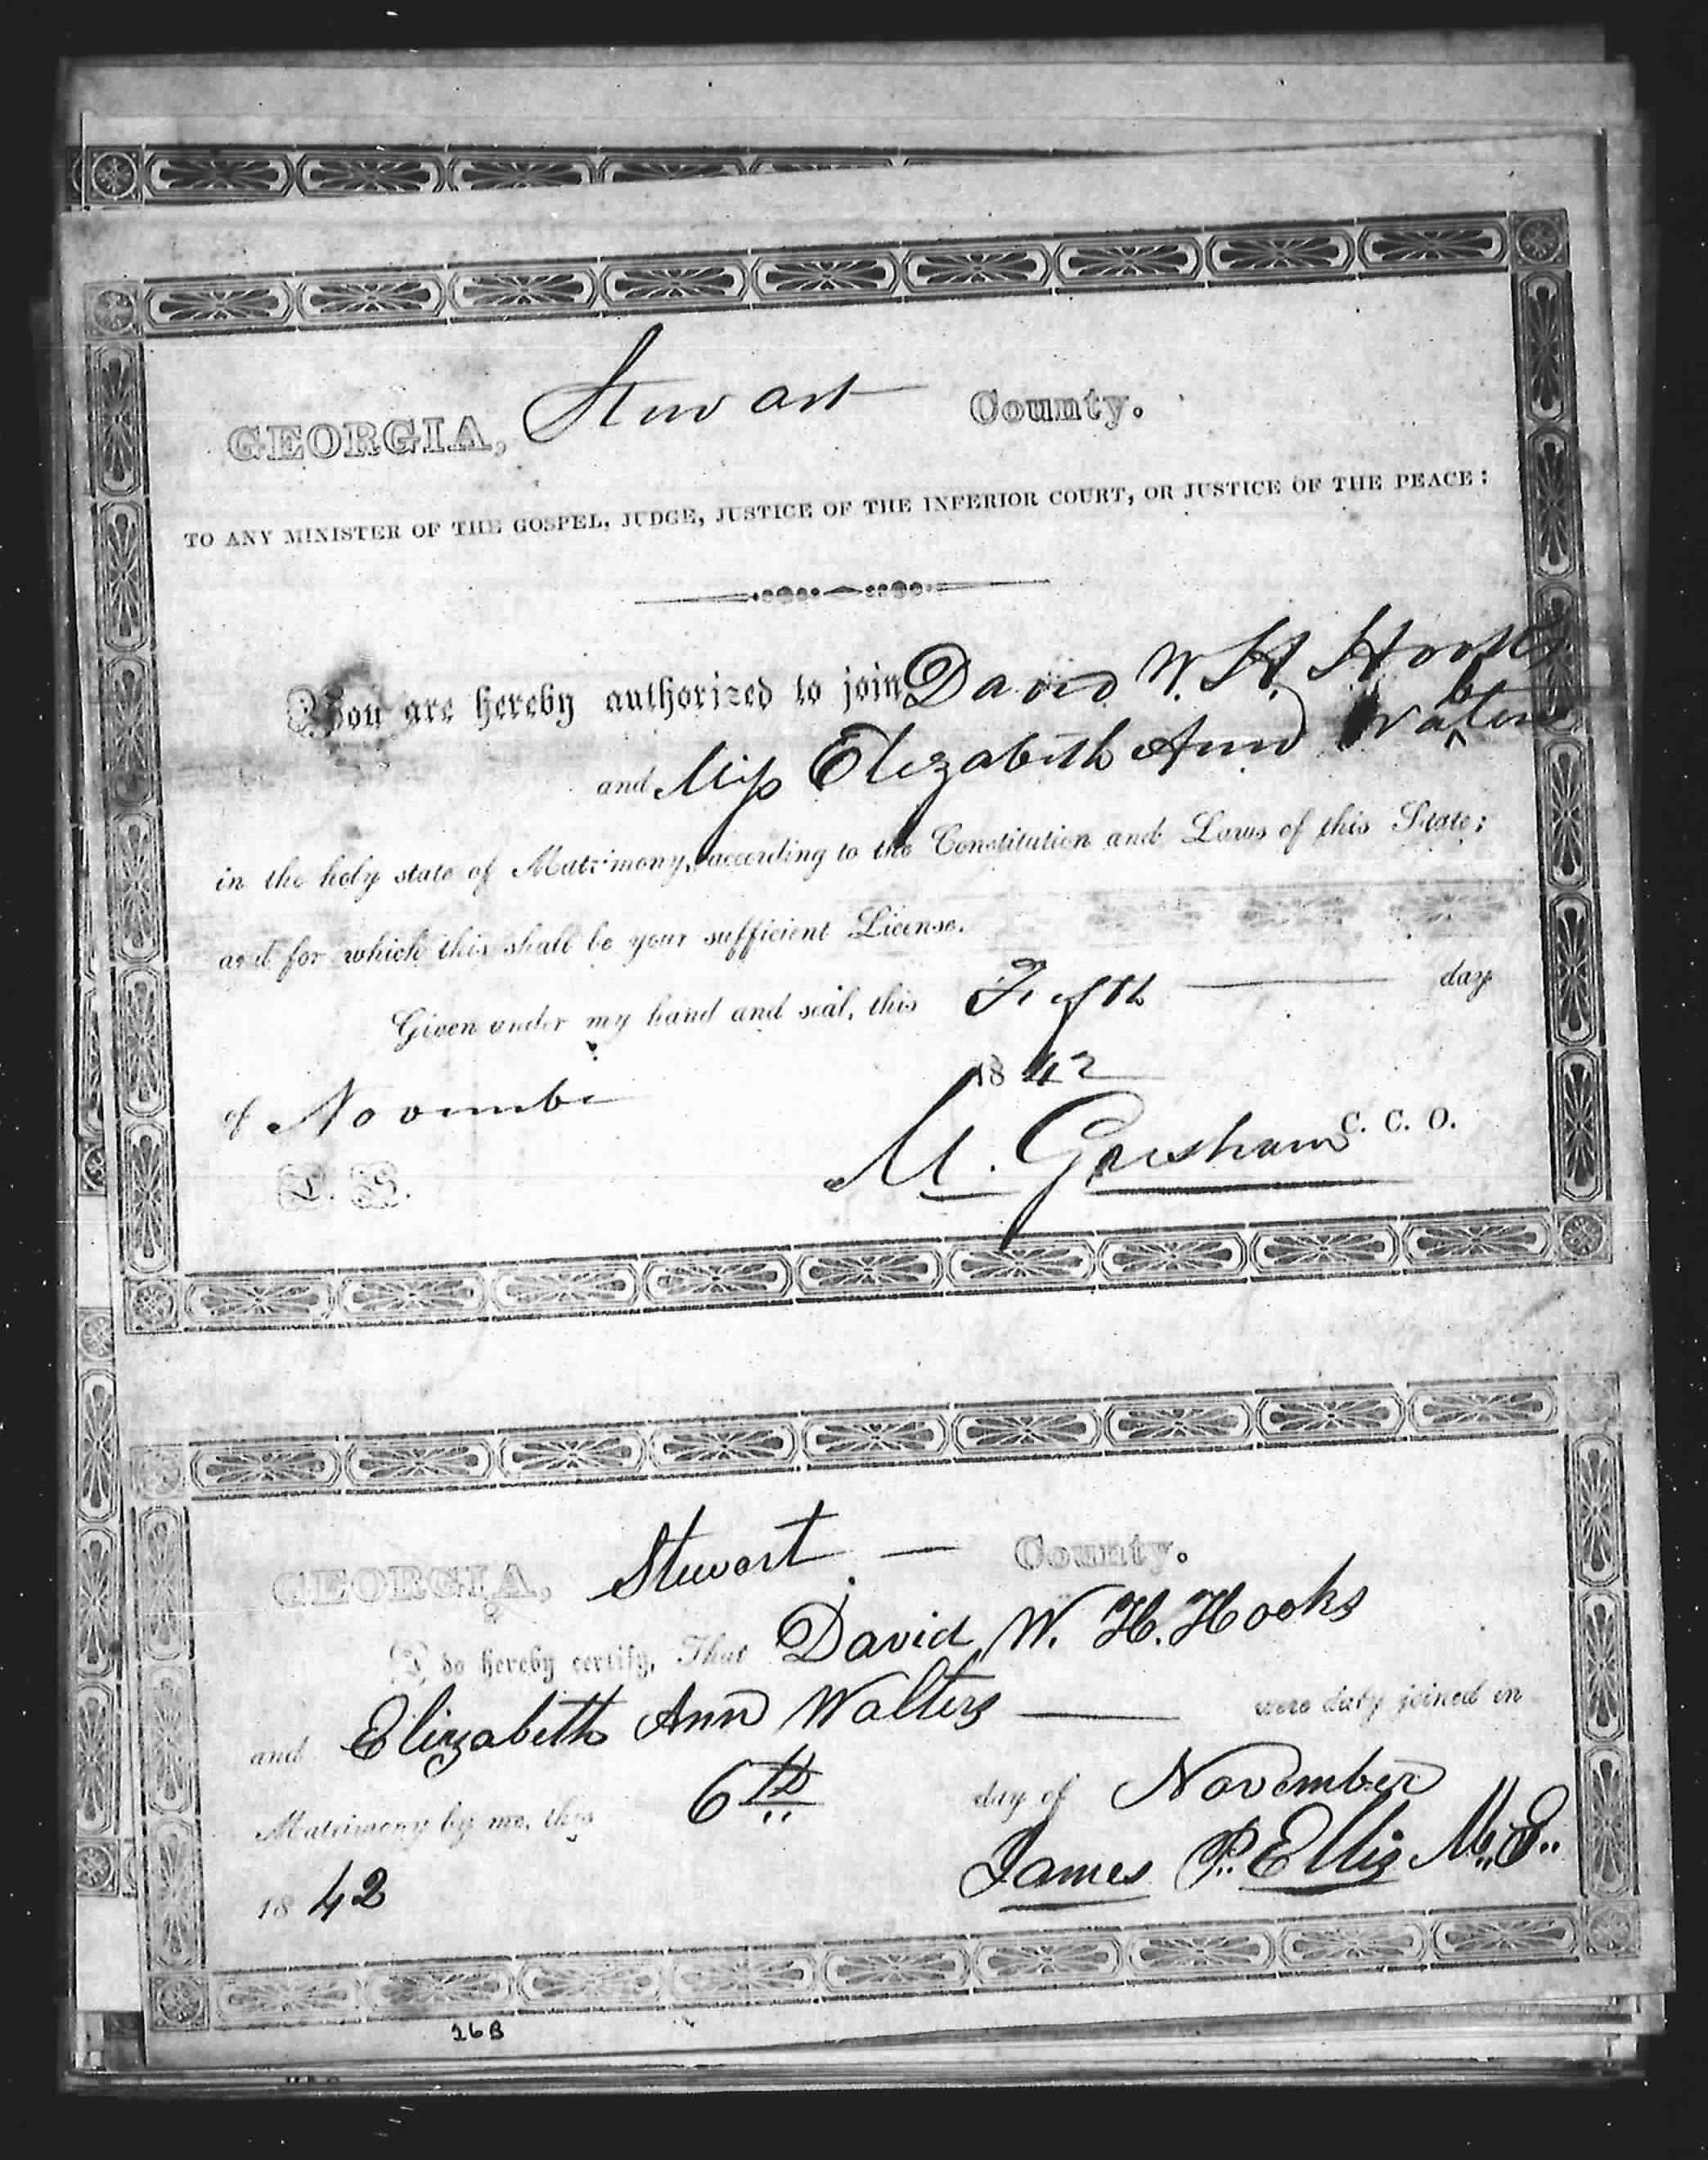 GEORGIA, Stewart County.
TO ANY MINISTER OF THE GOSPEL, JUDGE, JUSTICE OF THE INFERIOR COURT, OR JUSTICE OF THE PEACE:
You are hereby authorized to join David W. H. Hooks
and Miss Elizabeth Ann Walters
in the holy state of Matrimony, according to the Constitution and Laws of this State;
and for which this shall be your sufficient License.
Given under my hand and seal, this Fifth day
of November 1842
L. S. M. Gresham C. C. O.
GEORGIA, Stewart — County.
I do hereby certify, That David W. H. Hooks
and Elizabeth Ann Walters — were duly joined in
Matrimony by me, this 6th day of November
1842 James P. Ellis M. G.
26B